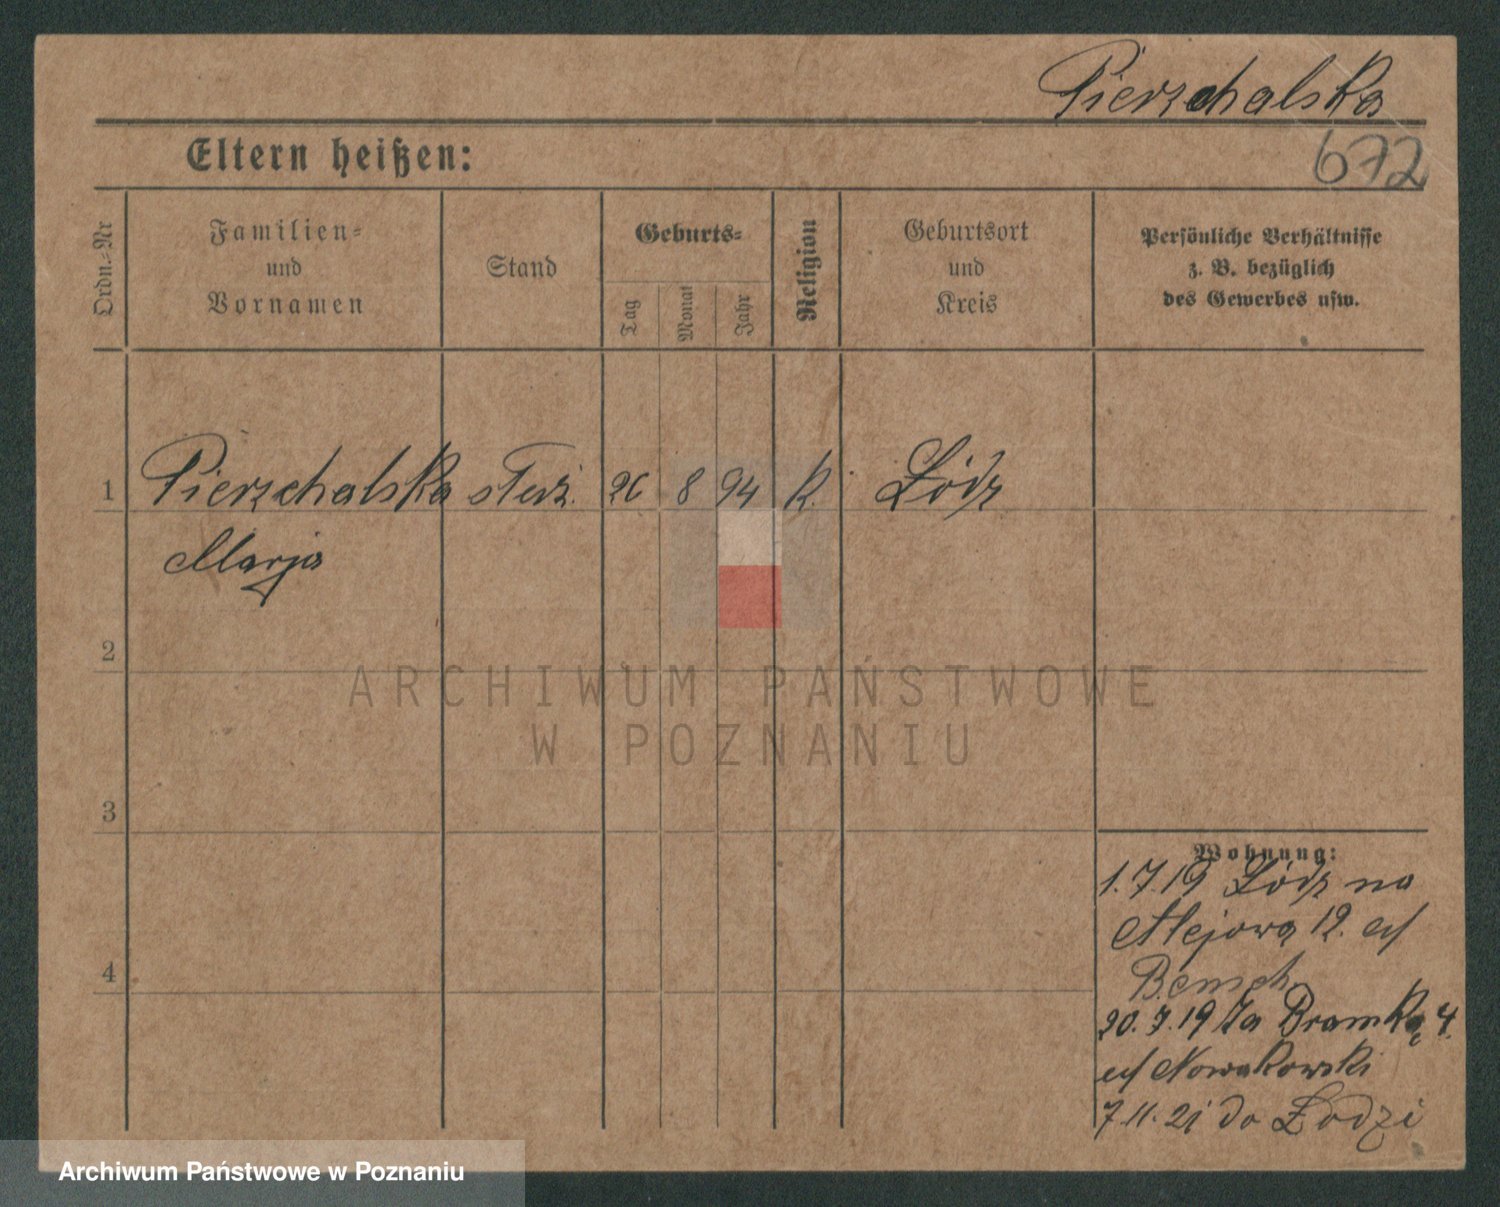 Pierzchalska
672
Eltern heißen:
Ordn.-Nr
Familien-
und
Vornamen
Stand
Geburts-
Tag
Monat
Jahr
Religion
Geburtsort
und
Kreis
Persönliche Verhältnisse
z. B. bezüglich
des Gewerbes usw.
1 Pierzchalska 26 8 94 K. Łódz
Marja
2
ARCHIWUM PAŃSTWOWE
W POZNANIU
3
Wohnung:
1.7.19 Łódz na
Alejowa 12.
Bemsch
20.7.19 Za Bramką 4.
Nowakowski
7.11.21 do Łodzi
4
Archiwum Państwowe w Poznaniu